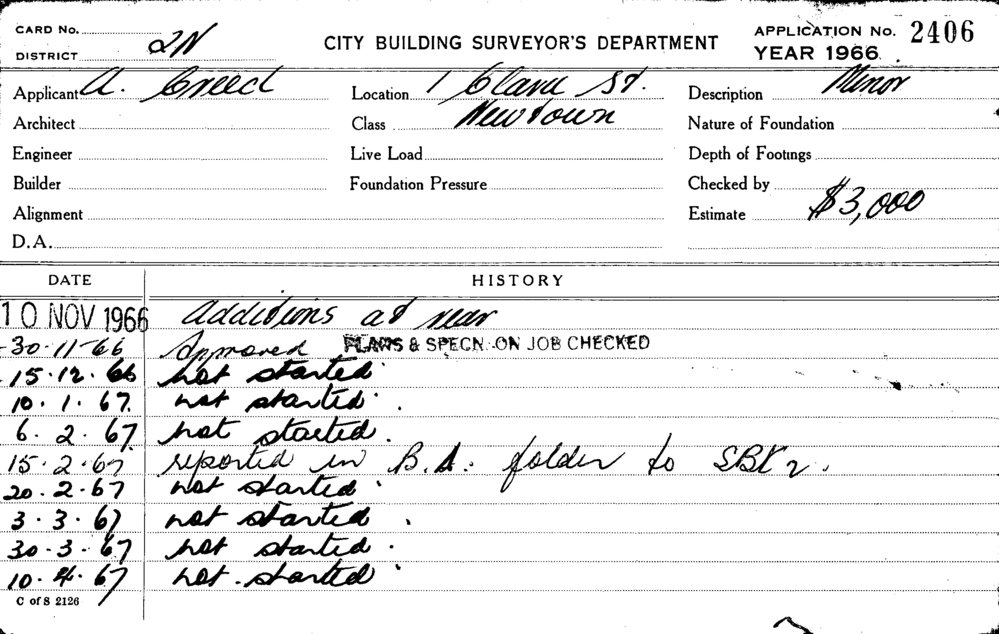 CARD No.
DISTRICT 2N
CITY BUILDING SURVEYOR'S DEPARTMENT
APPLICATION No. 2406
YEAR 1966
Applicant A. Creed
Location 1 Clara St.
Description Minor
Architect
Class Newtown
Nature of Foundation
Engineer
Live Load
Depth of Footings
Builder
Foundation Pressure
Checked by
Alignment
Estimate $3,000
D.A.
DATE HISTORY
10 NOV 1966 Additions at rear
30-11-66 Approved PLANS & SPECN. ON JOB CHECKED
15.12.66 not started.
10.1.67. not started.
6.2.67 not started.
15.2.67 reported in B.A. folder to
20.2.67 not started.
3.3.67 not started.
30-3-67 not started.
10.4.67 not started.
C of S 2126